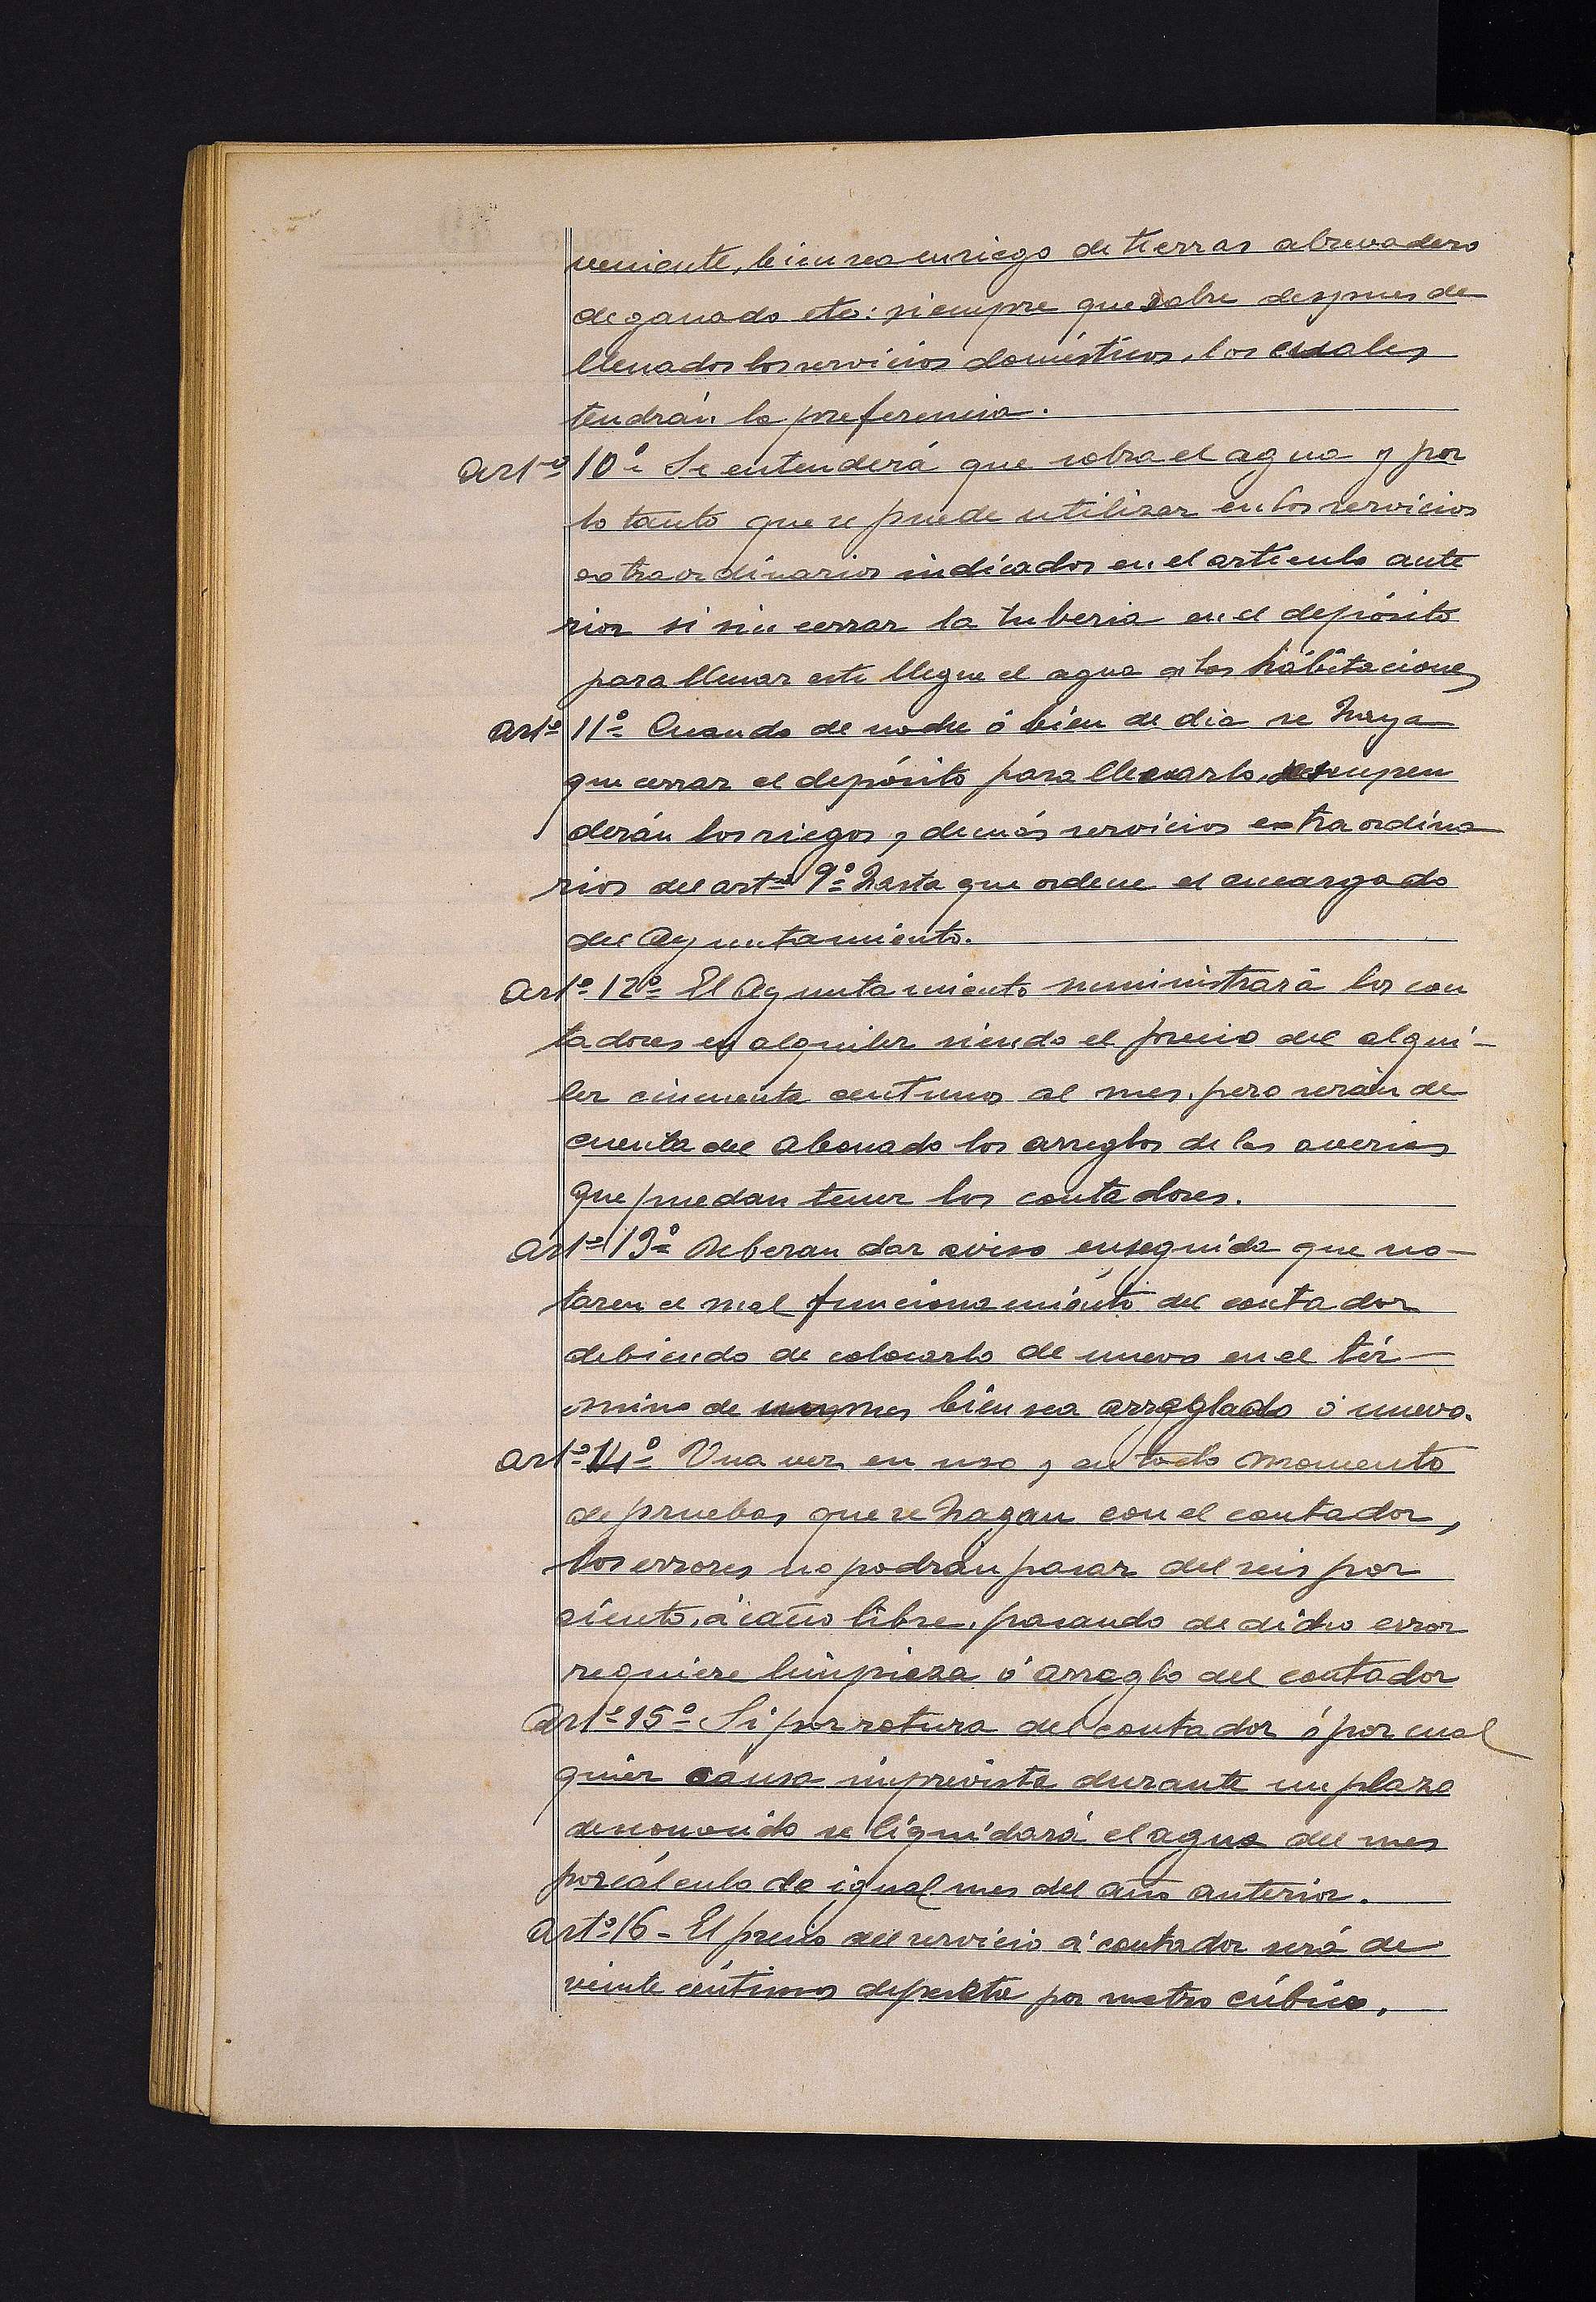 veniente, bien sea en riego de tierras abrevadero
de ganado etc: siempre que sobre despues de
llenados los servicios domésticos, los cuales
tendrán la preferencia.
Artº 10º Se entenderá que sobra el agua y por
lo tanto que se puede utilizar en los servicios
extraordinarios indicados en el articulo ante
rior si sin cerrar la tuberia en el depósito
para llenar este llegue el agua a las habitaciones
Artº 11º Cuando de noche ó bien de dia se haya
que cerrar el depósito para llenarlo, se suspen
derán los riegos y demás servicios extraordina
rios del artº 9º hasta que ordene el encargado
del Ayuntamiento.
Artº 12º El Ayuntamiento suministrará los con
tadores en alquiler siendo el precio del alqui-
ler cincuenta centimos al mes, pero serán de
cuenta del abonado los arreglos de las averias
que puedan tener los contadores.
Artº 13º Deberan dar aviso enseguida que no-
taren el mal funcionamiento del contador
debiendo de colocarlo de nuevo en el tér-
mino de un mes bien sea arreglado ó nuevo.
Artº 14º Una vez en uso y en todo momento
de pruebas que se hagan con el contador,
los errores no podrán pasar del seis por
ciento, á caño libre, pasando de dicho error
requiere limpieza ó arreglo del contador
Artº 15º Si por rotura del contador ó por cual
quier causa imprevista durante un plazo
desconocido se liquidará el agua del mes
por cálculo de igual mes del año anterior.
Artº 16 - El precio del servicio á contador será de
veinte céntimos de peseta por metro cúbico.